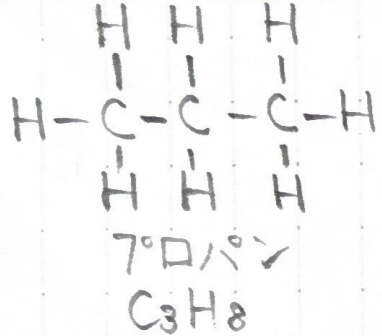 H H H
H-C-C-C-H
H H H
プロパン
C₃H₈